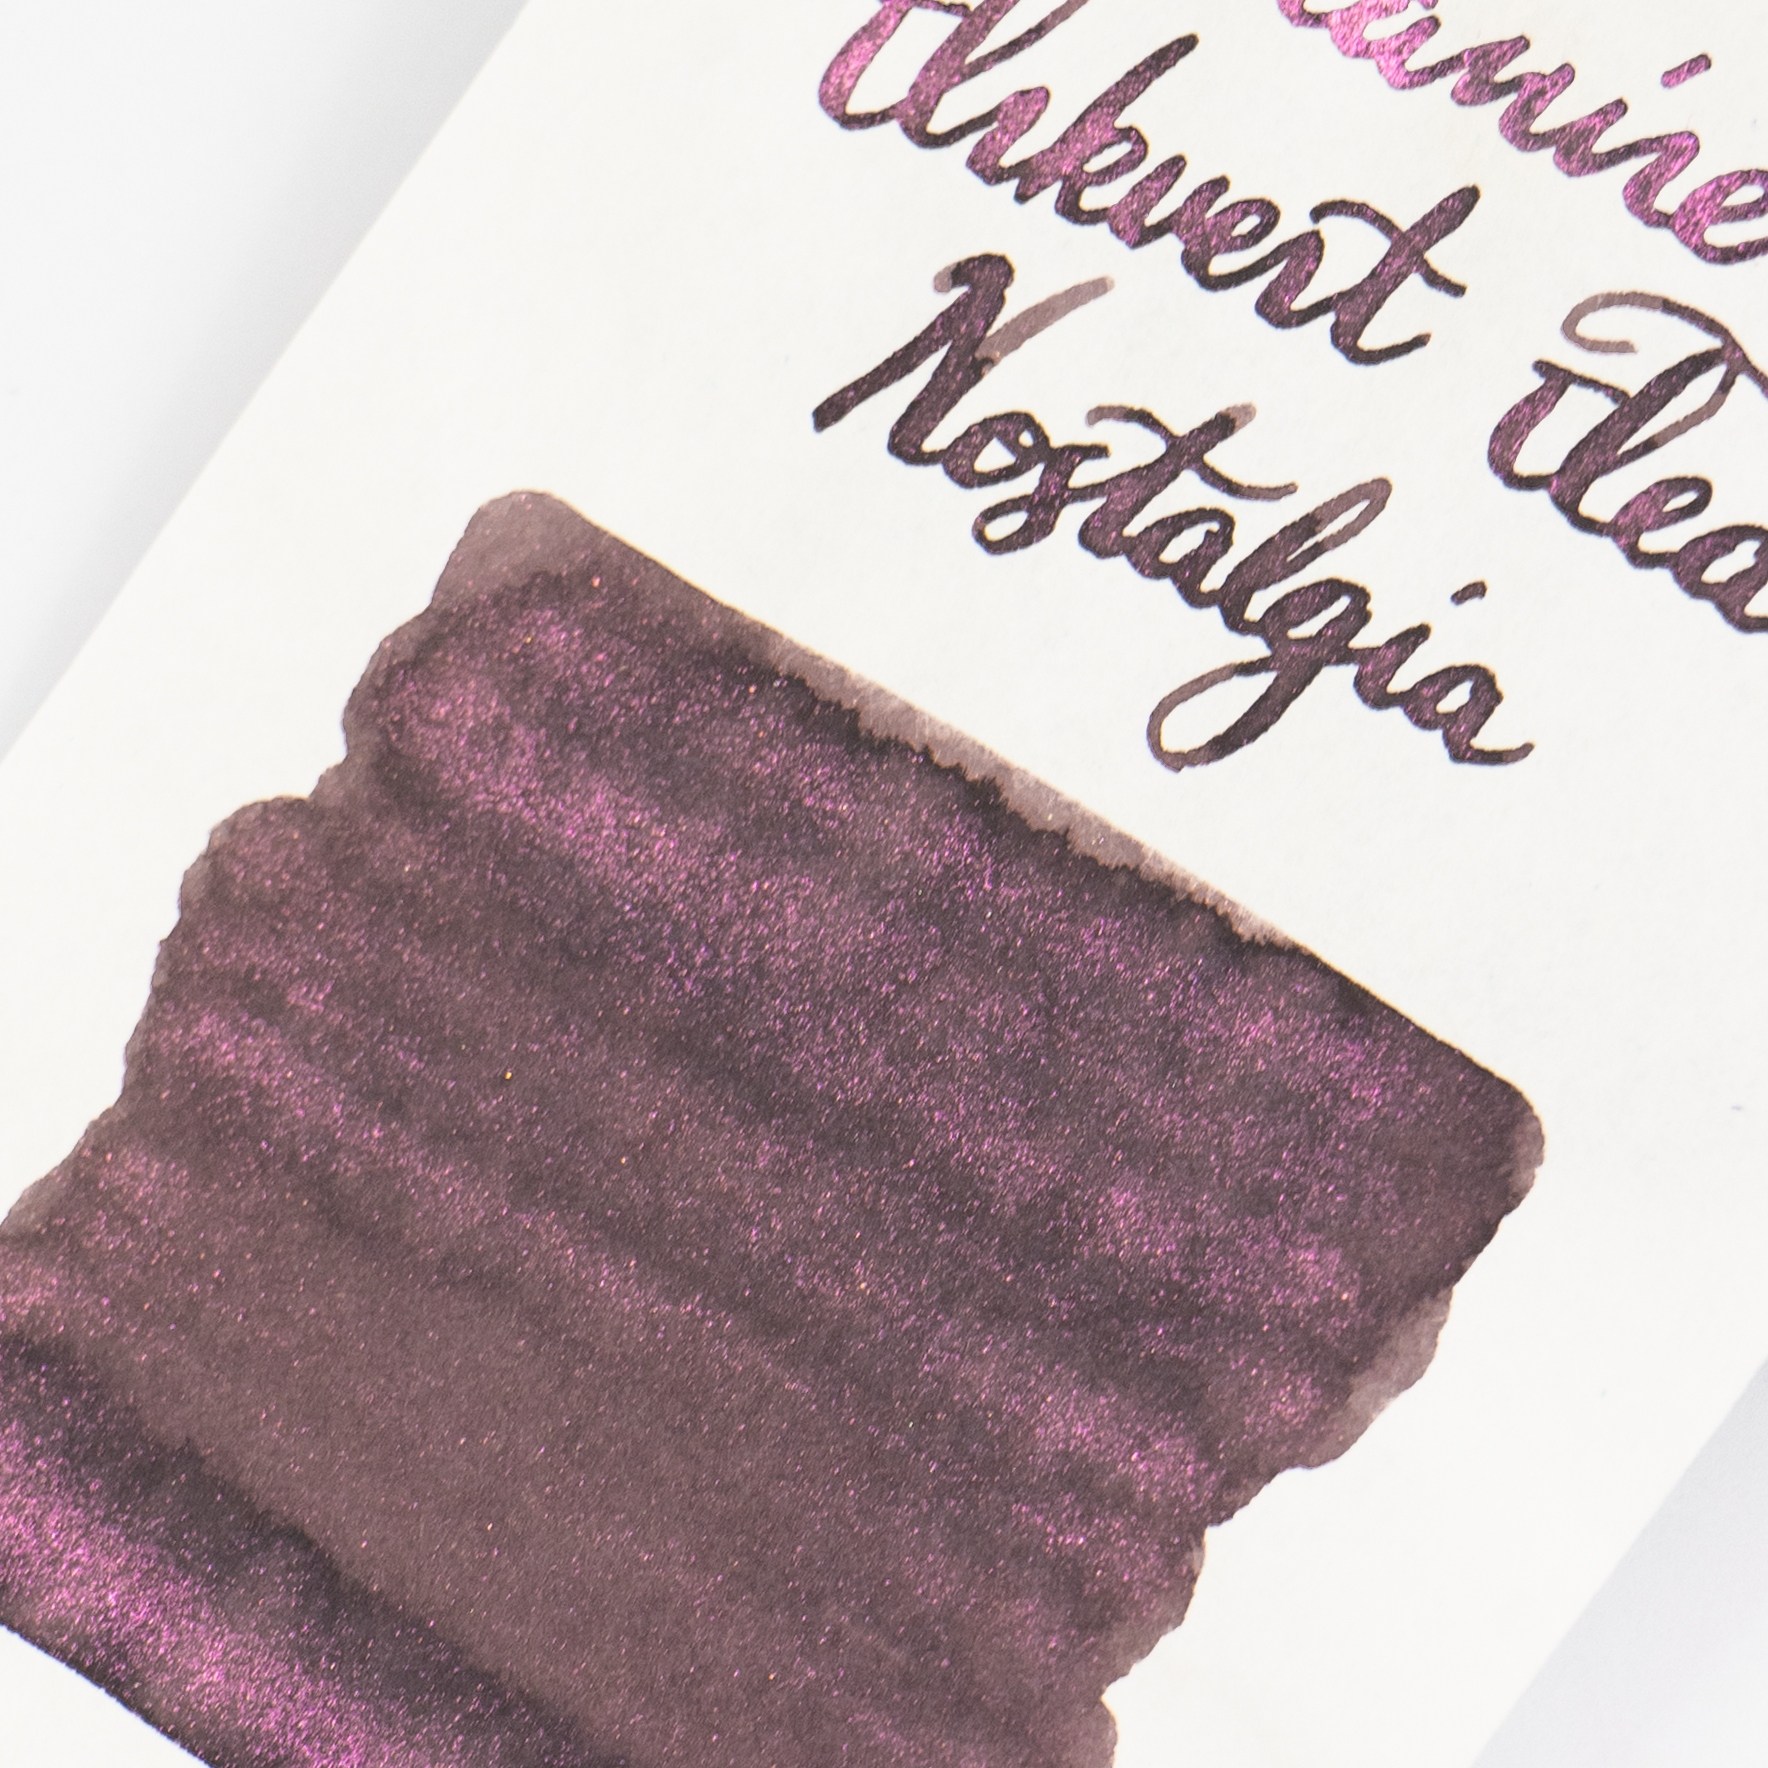 amine
Inkvent Tea
Nostalgia